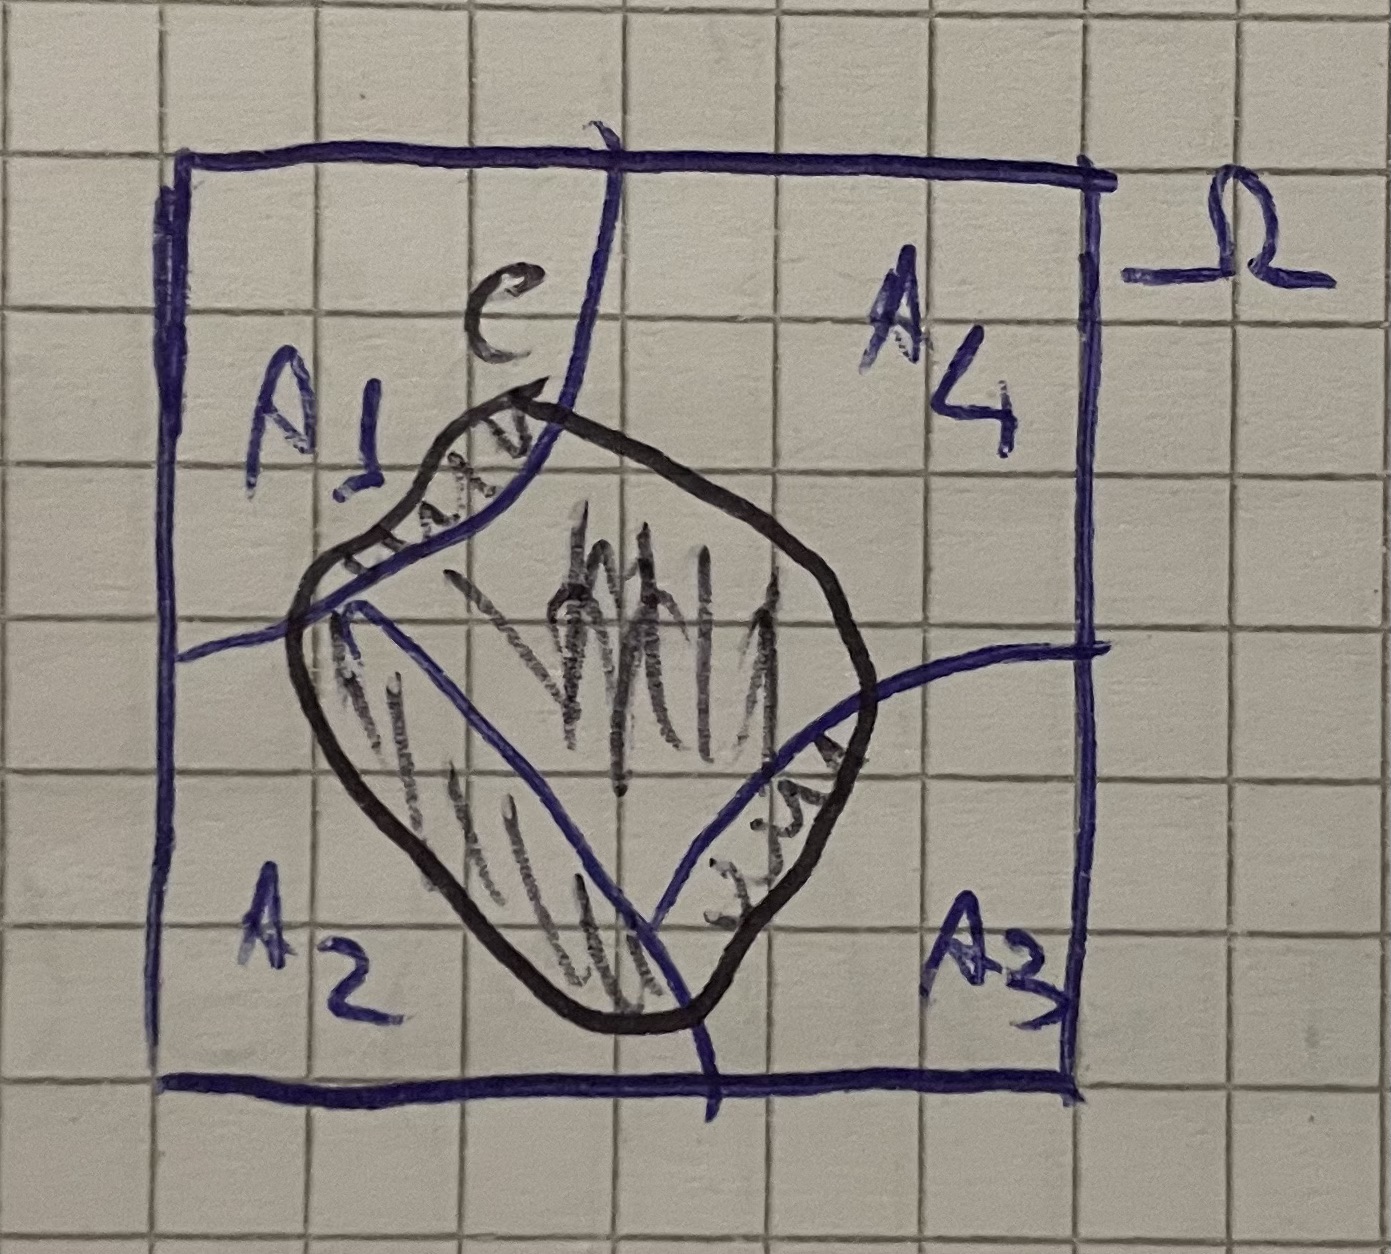 Ω
C
A₄
A₁
A₂
A₃